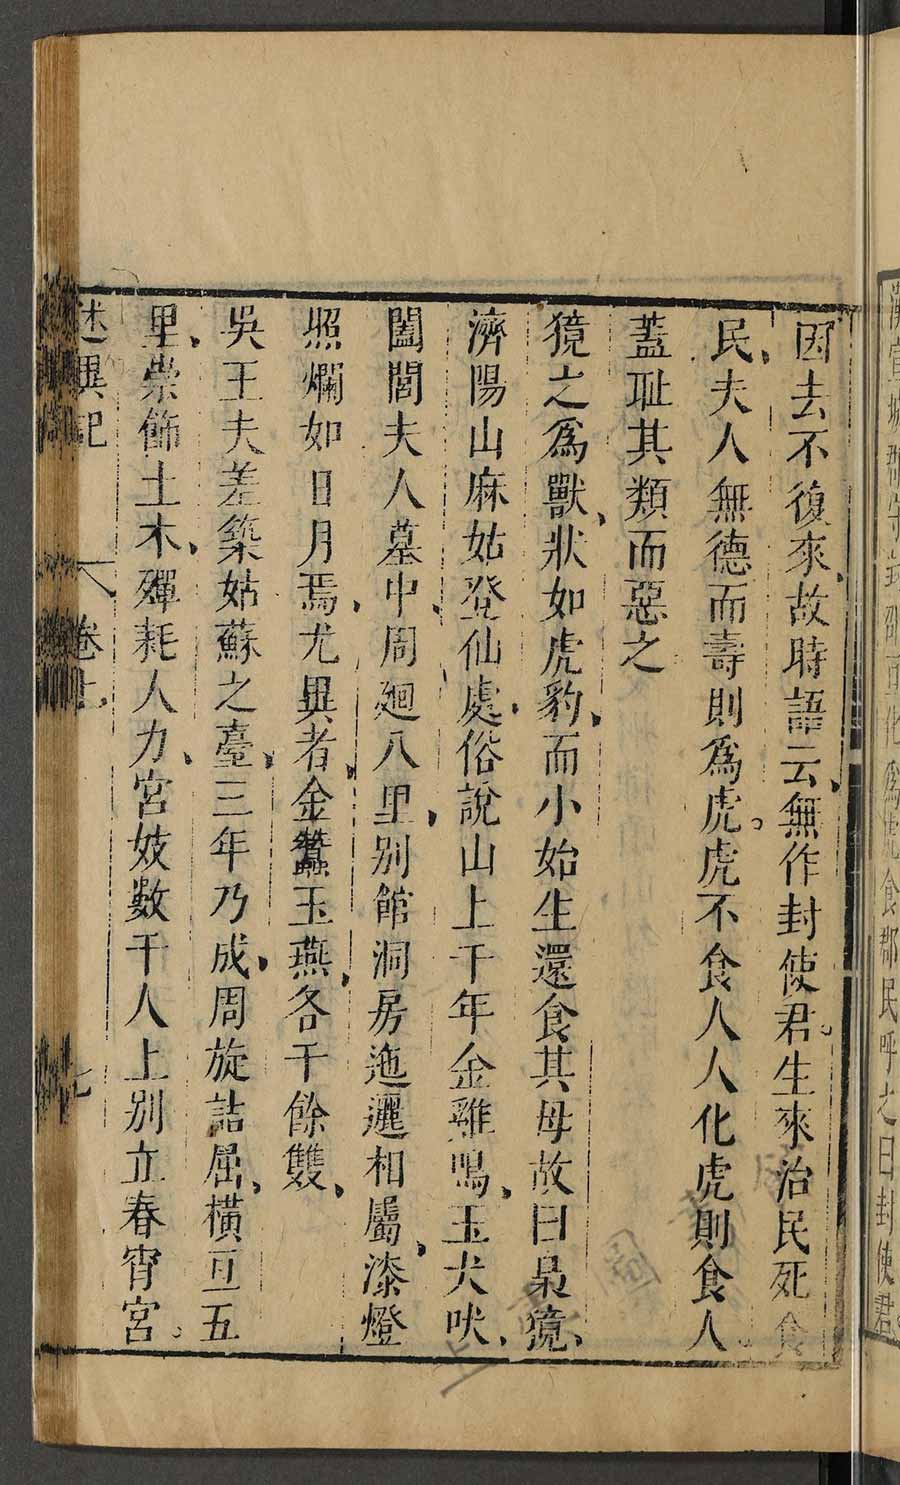 漢宣城郡守封邵一日化爲虎食郡民呼之曰封使君
因去不復來故時語云無作封使君生來治民死食
民夫人無德而壽則爲虎虎不食人人化虎則食人
蓋耻其類而惡之
獍之爲獸狀如虎豹而小始生還食其母故曰梟獍
濟陽山麻姑登仙處俗說山上千年金雞鳴玉犬吠
闔閭夫人墓中周廻八里別館洞房迤邐相屬漆燈
照爛如日月焉尤異者金蠶玉燕各千餘雙
吳王夫差築姑蘇之臺三年乃成周旋詰屈橫亘五
里崇飾土木殫耗人力宮妓數千人上別立春宵宮
述異記 卷上 七